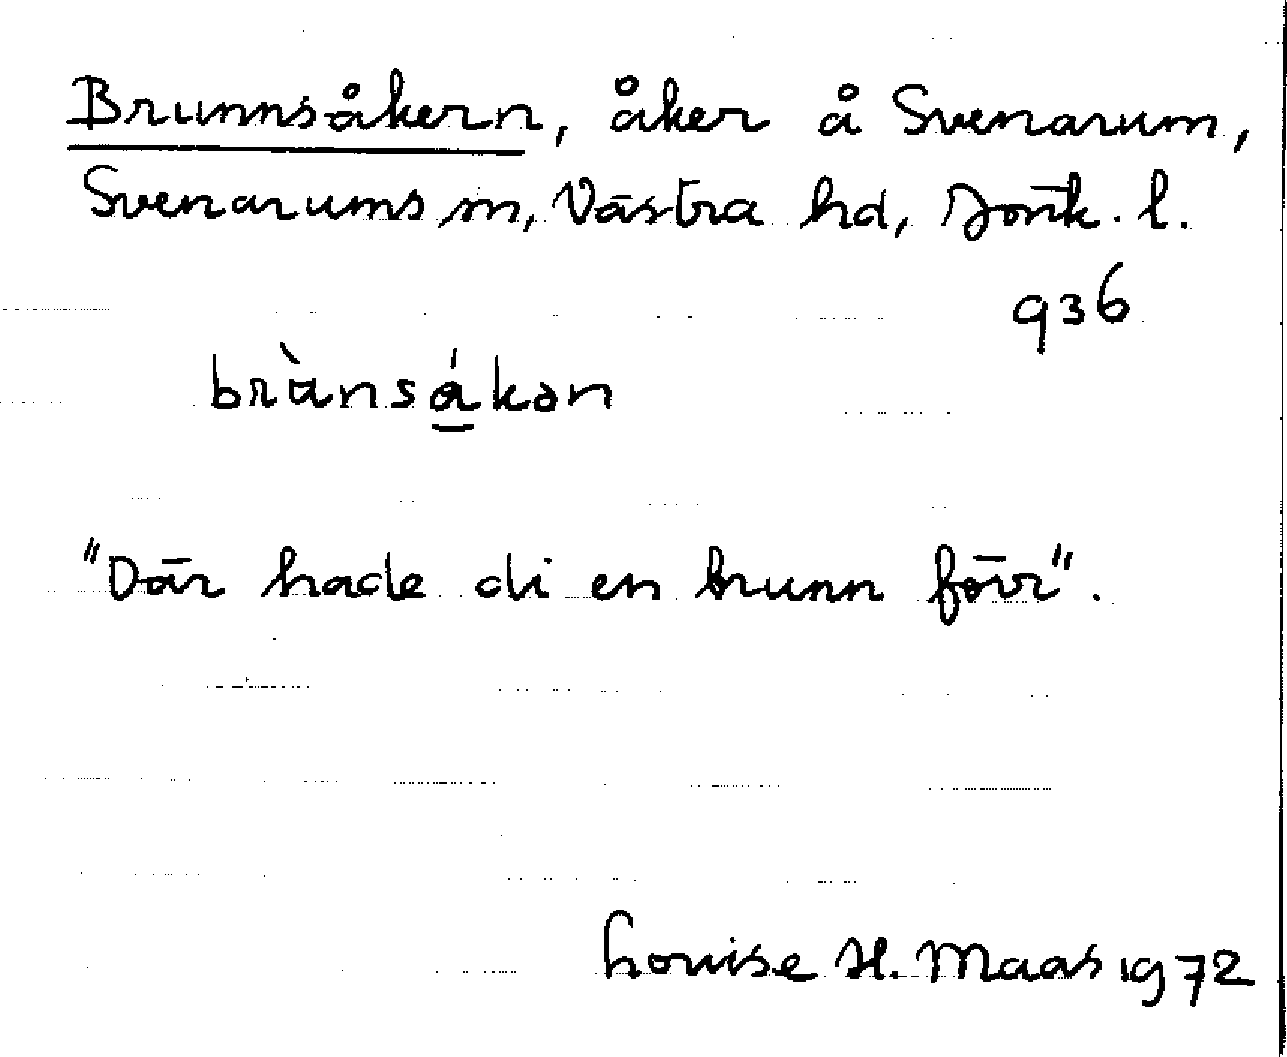 Brunnsåkern, åker å Svenarum,
Svenarums sn, Västra hd, Jönk. l.
936
brànsákən
"Där hade di en brunn förr".
Louise H. Maas 1972